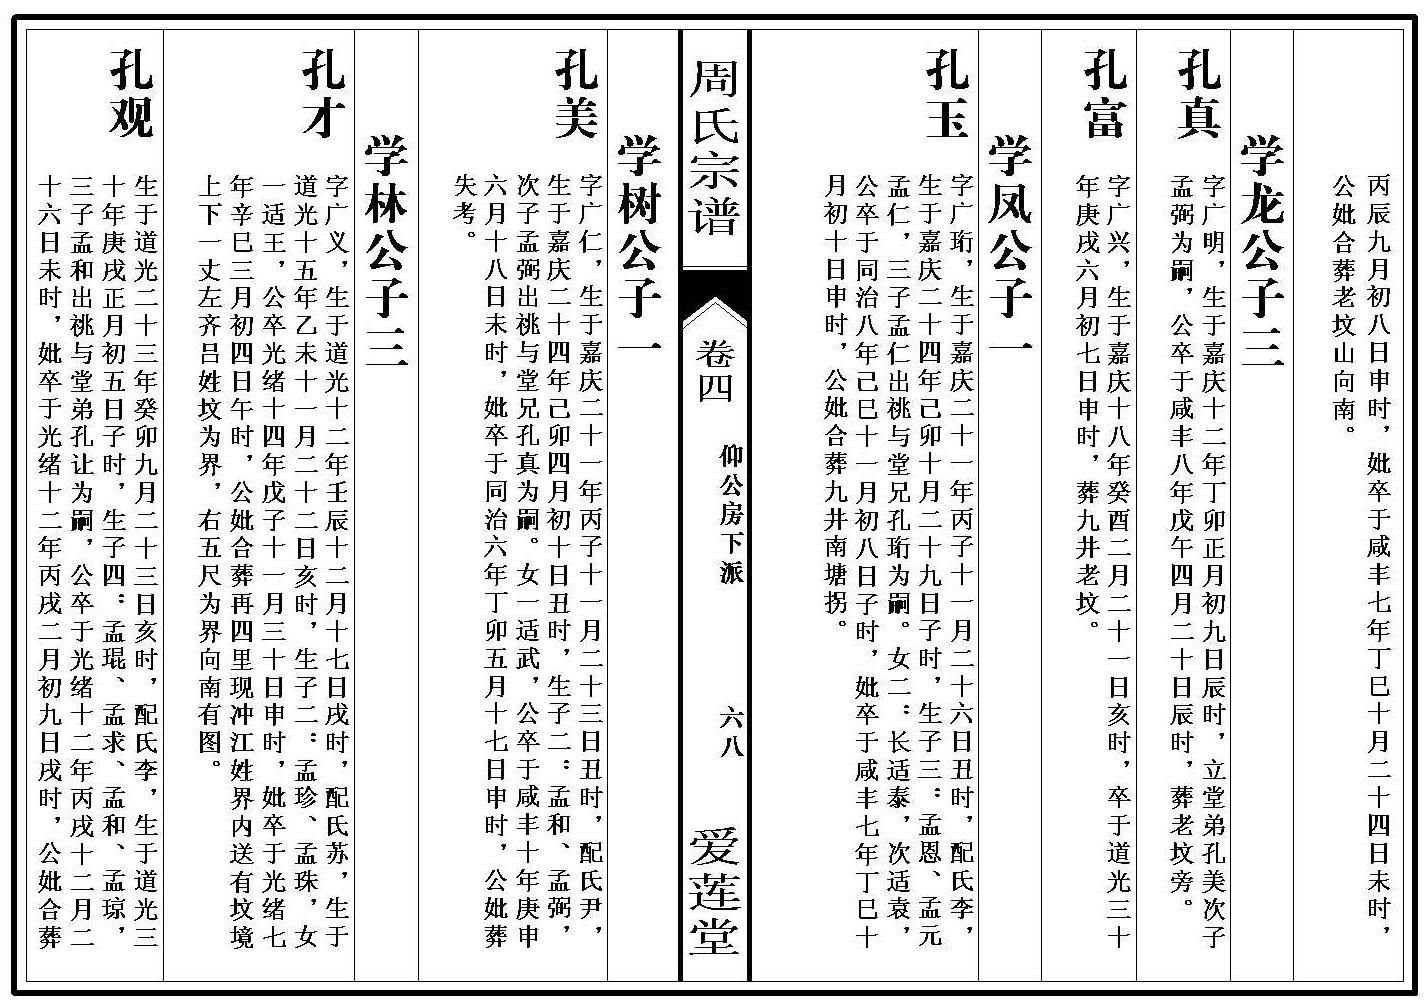 丙辰九月初八日申时，妣卒于咸丰七年丁巳十月二十四日未时，
公妣合葬老坟山向南。
学龙公子三
孔真
字广明，生于嘉庆十二年丁卯正月初九日辰时，立堂弟孔美次子
孟弼为嗣，公卒于咸丰八年戊午四月二十日辰时，葬老坟旁。
孔富
字广兴，生于嘉庆十八年癸酉二月二十一日亥时，卒于道光三十
年庚戌六月初七日申时，葬九井老坟。
学凤公子一
孔玉
字广珩，生于嘉庆二十一年丙子十一月二十六日丑时，配氏李，
生于嘉庆二十四年己卯十月二十九日子时，生子三：孟恩、孟元
孟仁，三子孟仁出祧与堂兄孔珩为嗣。女二：长适泰，次适袁，
公卒于同治八年己巳十一月初八日子时，妣卒于咸丰七年丁巳十
月初十日申时，公妣合葬九井南塘拐。
周氏宗谱
卷四
仰公房下派
六八
爱莲堂
学树公子一
孔美
字广仁，生于嘉庆二十一年丙子十一月二十三日丑时，配氏尹，
生于嘉庆二十四年己卯四月初十日丑时，生子二：孟和、孟弼，
次子孟弼出祧与堂兄孔真为嗣。女一适武，公卒于咸丰十年庚申
六月十八日未时，妣卒于同治六年丁卯五月十七日申时，公妣葬
失考。
学林公子三
孔才
字广义，生于道光十二年壬辰十二月十七日戌时，配氏苏，生于
道光十五年乙未十一月二十二日亥时，生子二：孟珍、孟珠，女
一适王，公卒光绪十四年戊子十一月三十日申时，妣卒于光绪七
年辛巳三月初四日午时，公妣合葬再四里现冲江姓界内送有坟境
上下一丈左齐吕姓坟为界，右五尺为界向南有图。
孔观
生于道光二十三年癸卯九月二十三日亥时，配氏李，生于道光三
十年庚戌正月初五日子时，生子四：孟琨、孟求、孟和、孟琼，
三子孟和出祧与堂弟孔让为嗣，公卒于光绪十二年丙戌十二月二
十六日未时，妣卒于光绪十二年丙戌二月初九日戌时，公妣合葬